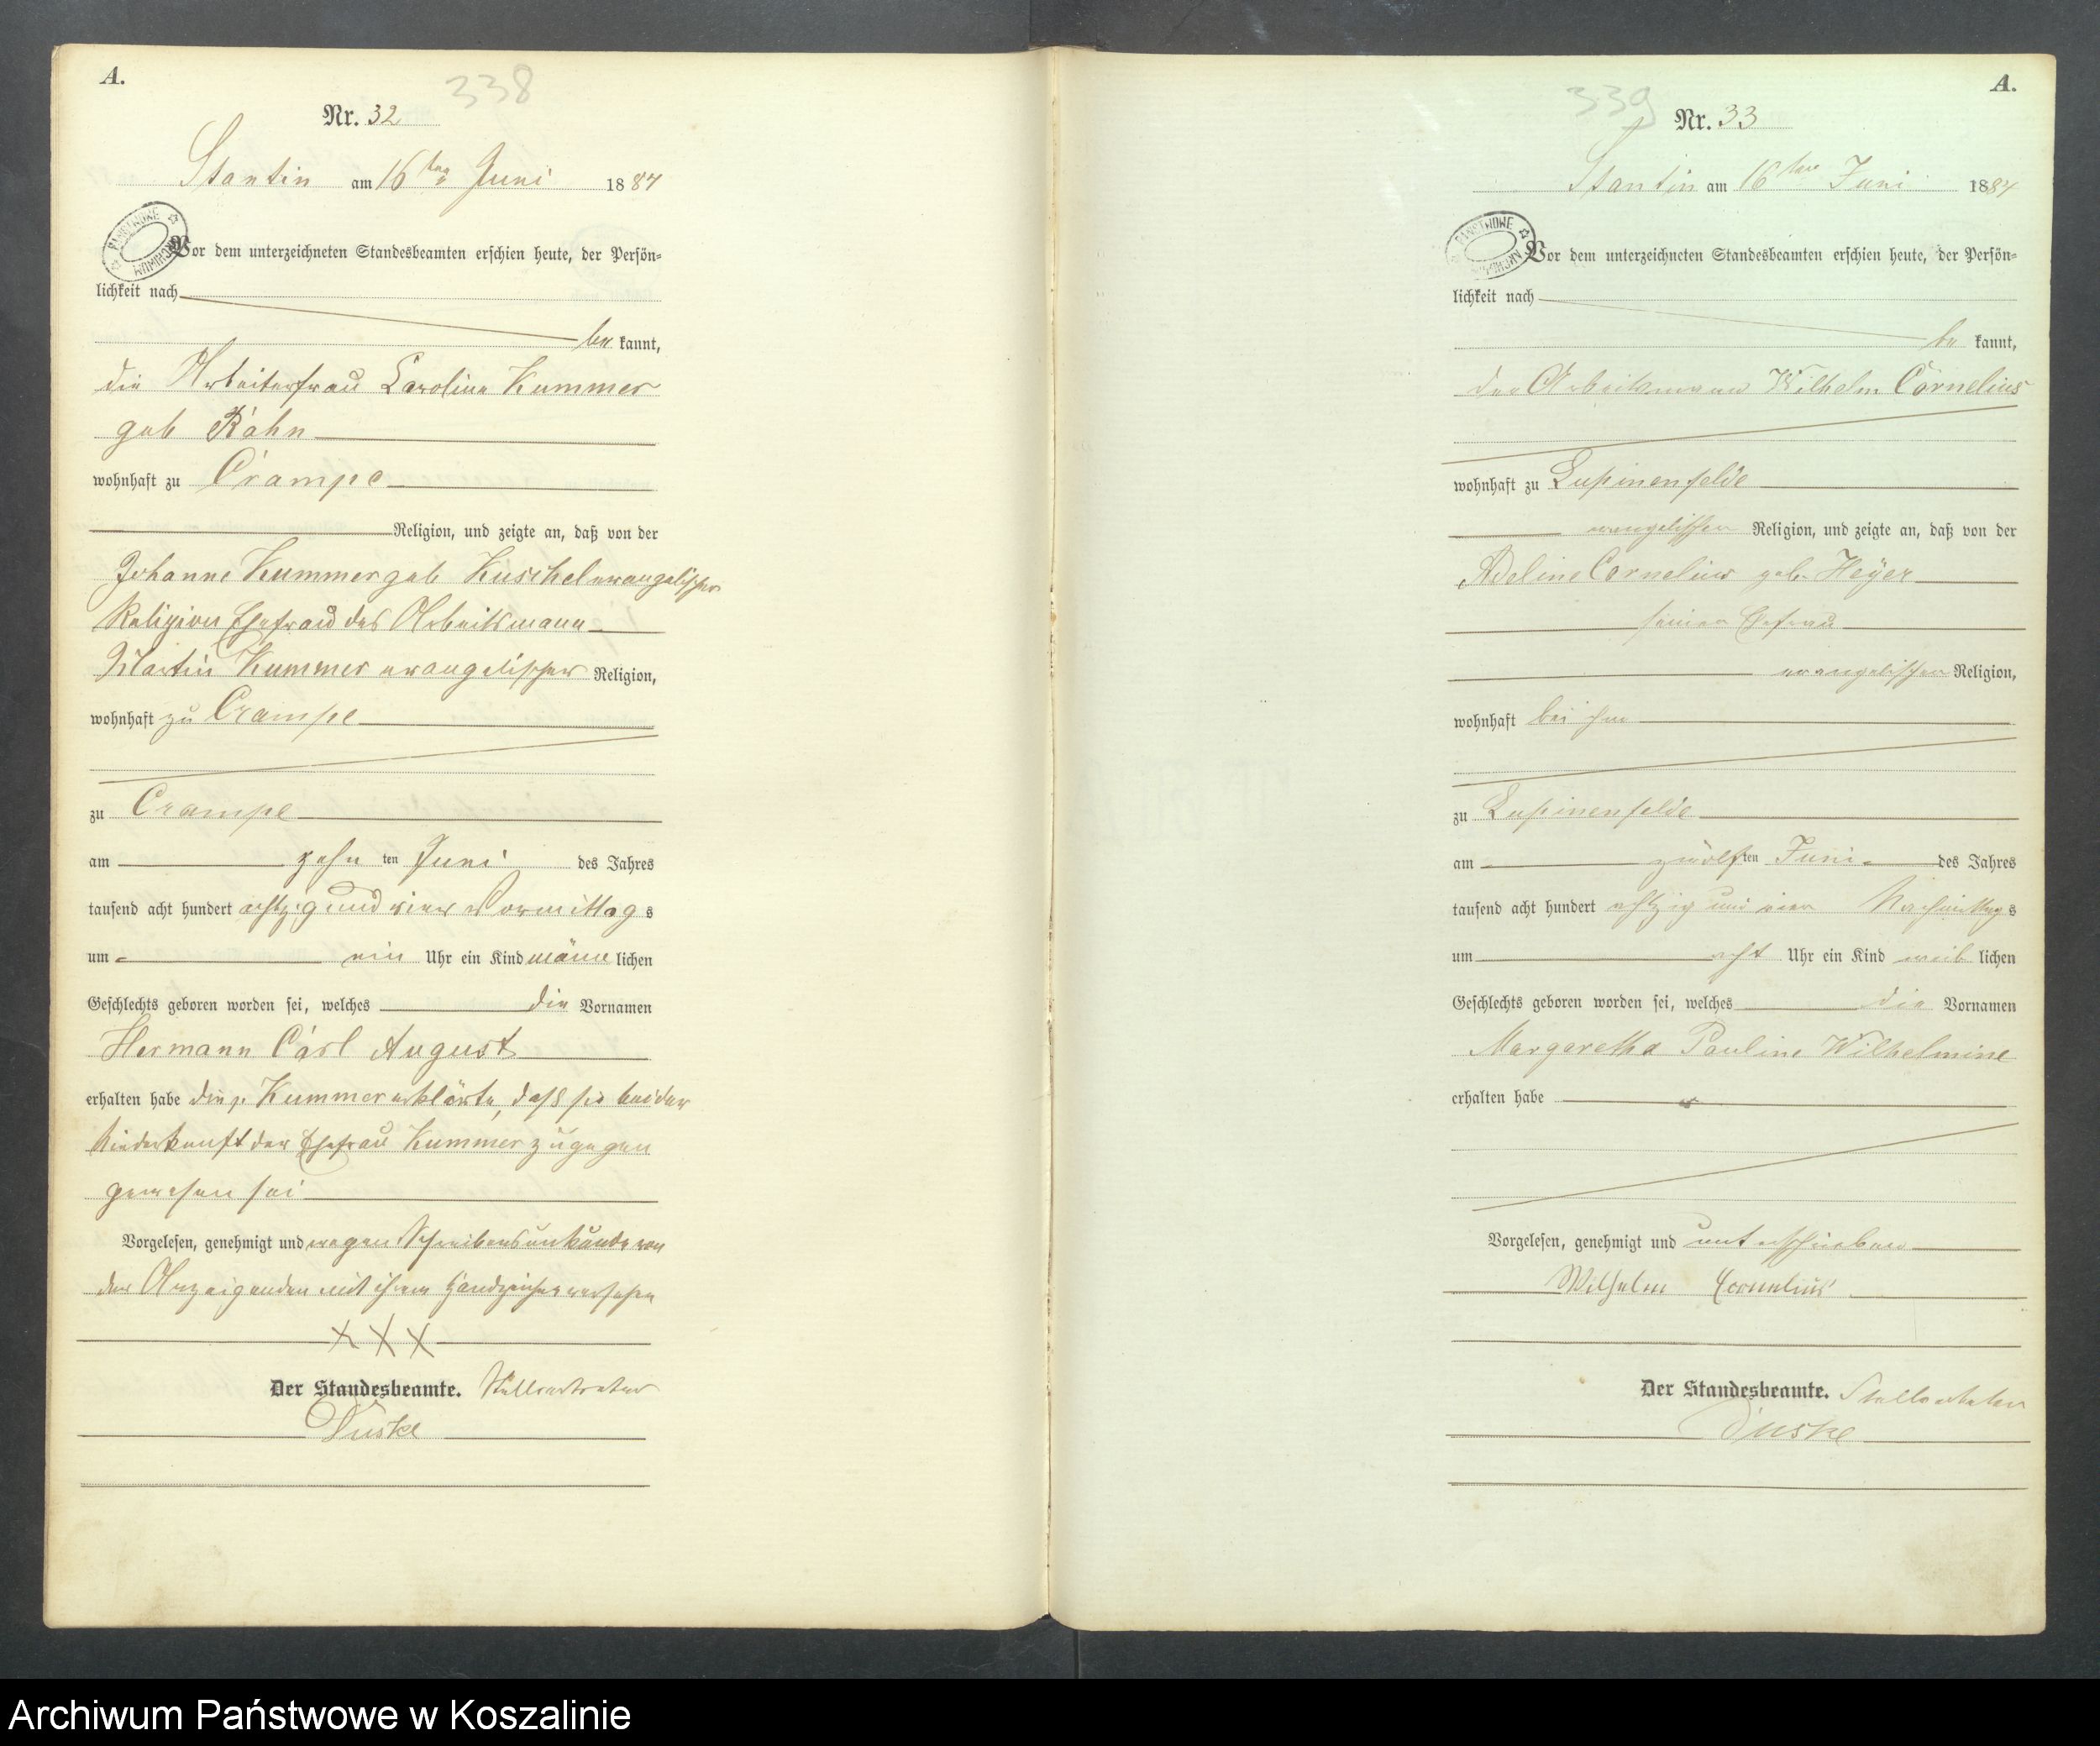 A.
338
Nr. 32
Stantin am 16ten Juni 1884
PAŃSTWOWE ARCHIWUM
Vor dem unterzeichneten Standesbeamten erschien heute, der Persön-
lichkeit nach
be kannt,
die Arbeiterfrau Caroline Kummer
geb Rahn
wohnhaft zu Crampe
Religion, und zeigte an, daß von der
Johanne Kummer geb Kuschel evangelischer
Religion Ehefrau des Arbeitsmann
Martin Kummer evangelischer Religion,
wohnhaft zu Crampe
zu Crampe
am zehn ten Juni des Jahres
tausend acht hundert achtzig und vier Vormittag s
um ein Uhr ein Kind männ lichen
Geschlechts geboren worden sei, welches die Vornamen
Hermann Carl August
erhalten habe die p. Kummer erklärte, daß sie bei der
Niederkunft der Ehefrau Kummer zugegen
gewesen sei
Vorgelesen, genehmigt und wegen Schreibensunkunde von
der Anzeigenden mit ihrem Handzeichen versehen
XXX
Der Standesbeamte. Stellvertreter
Duske
A.
339
Nr. 33
Stantin am 16ten Juni 1884
PAŃSTWOWE ARCHIWUM
Vor dem unterzeichneten Standesbeamten erschien heute, der Persön-
lichkeit nach
be kannt,
der Arbeitsmann Wilhelm Cornelius
wohnhaft zu Lupinenfelde
evangelischer Religion, und zeigte an, daß von der
Adeline Cornelius geb. Heyer
seiner Ehefrau
evangelischer Religion,
wohnhaft bei ihm
zu Lupinenfelde
am zwölf ten Juni des Jahres
tausend acht hundert achtzig und vier Nachmittag s
um acht Uhr ein Kind weib lichen
Geschlechts geboren worden sei, welches die Vornamen
Margaretha Pauline Wilhelmine
erhalten habe
Vorgelesen, genehmigt und unterschrieben
Wilhelm Cornelius
Der Standesbeamte. Stellvertreter
Duske
Archiwum Państwowe w Koszalinie